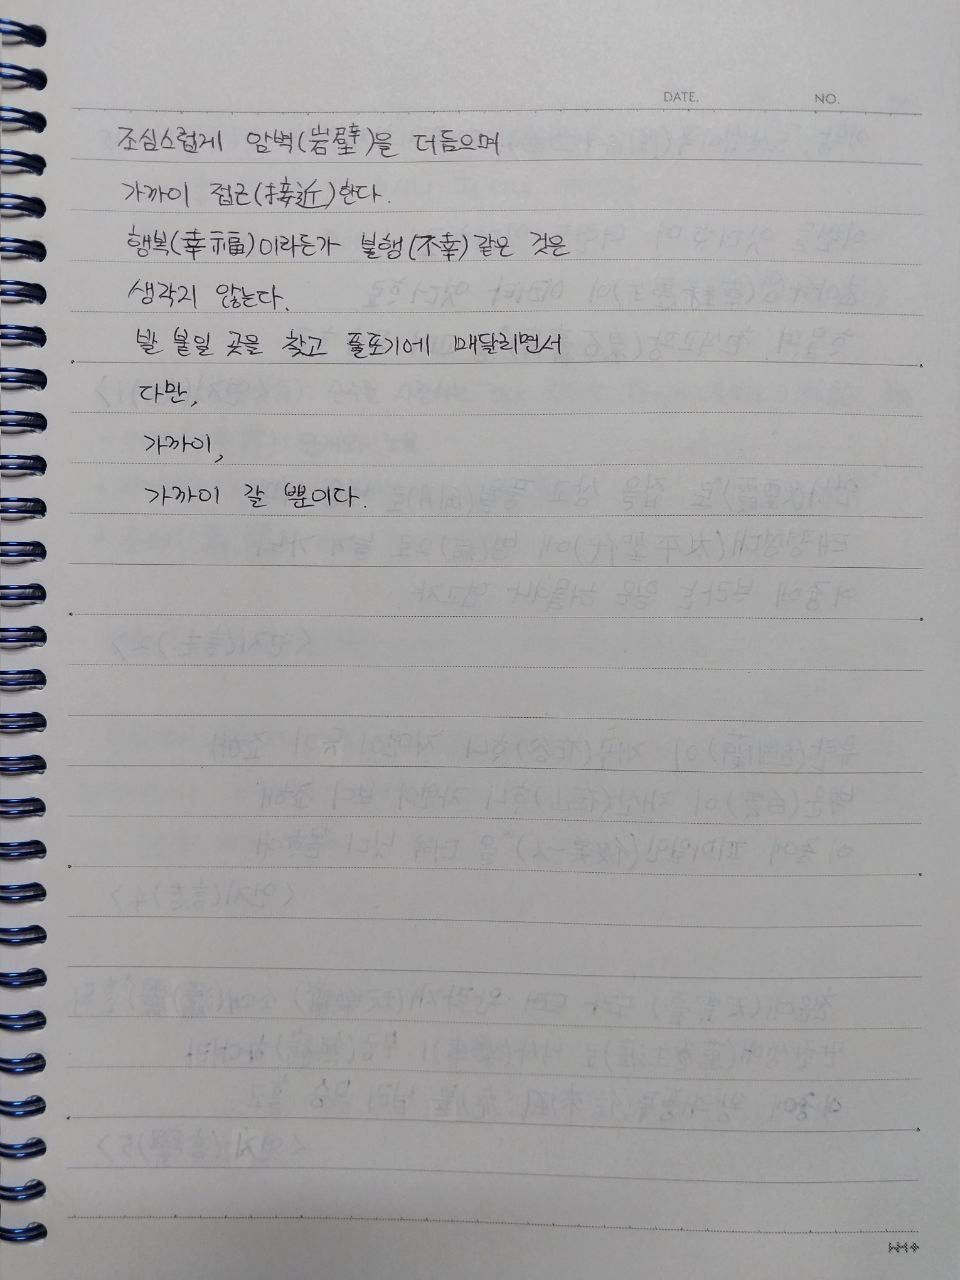 DATE. NO.
조심스럽게 암벽(岩壁)을 더듬으며
가까이 접근(接近)한다.
행복(幸福)이라든가 불행(不幸) 같은 것은
생각지 않는다.
발 붙일 곳을 찾고 풀포기에 매달리면서
다만,
가까이,
가까이 갈 뿐이다.